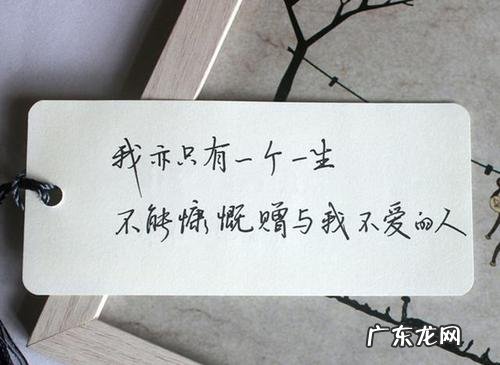 我亦只有一个一生
不能慷慨赠与我不爱的人
广东龙网